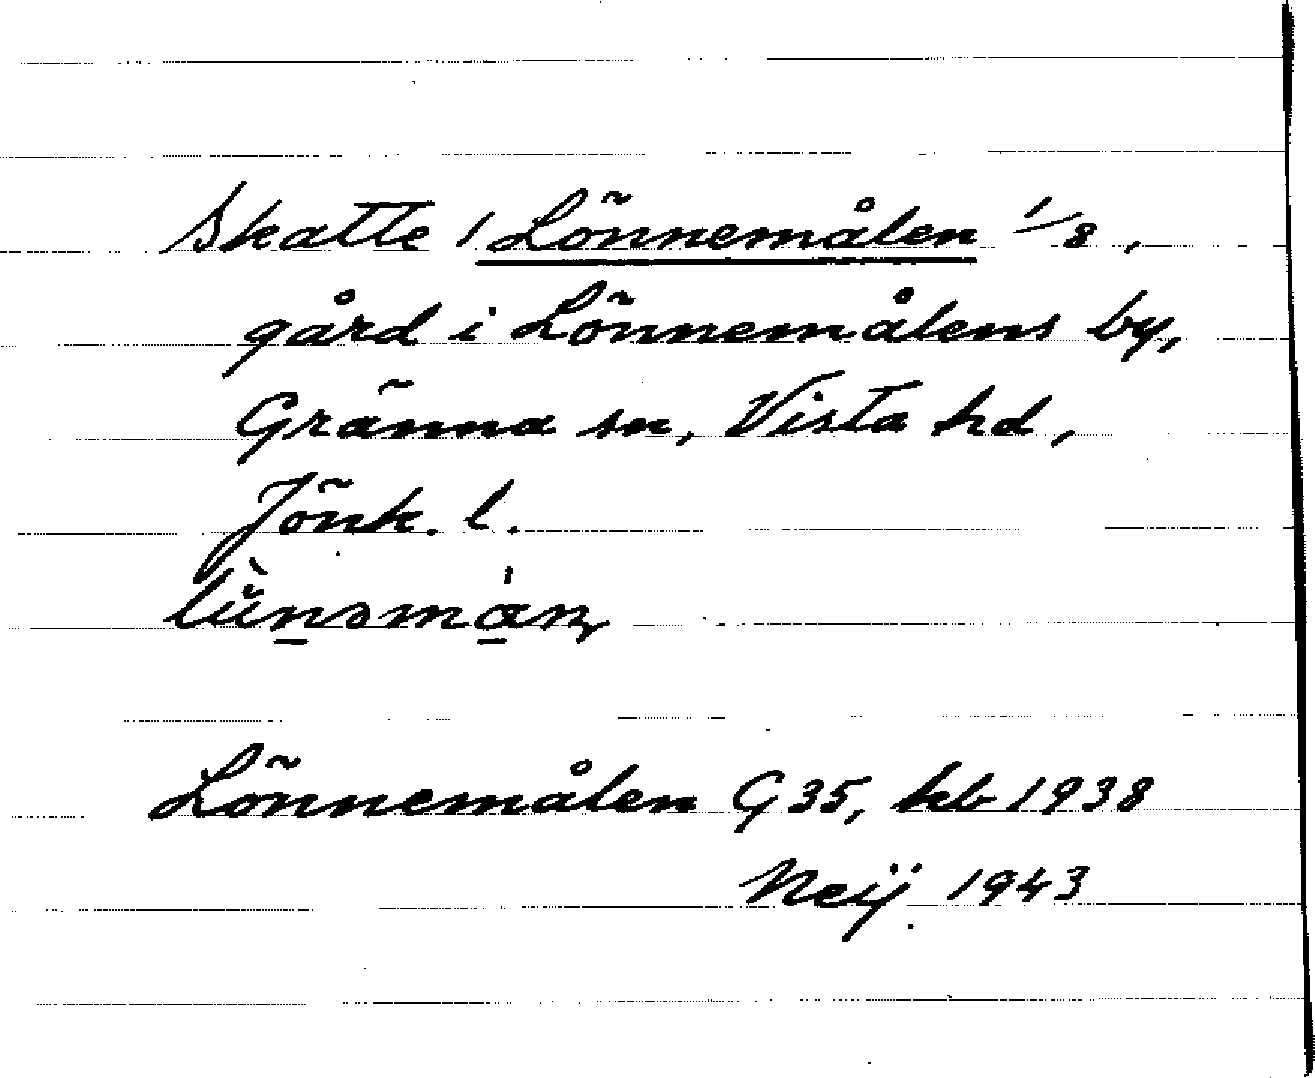 Skatte / Lönnemålen 1/8,
gård i Lönnemålens by,
Gränna sn, Vista hd,
Jönk. l.
Lönnemålen G 35, kb 1938
Neij. 1943